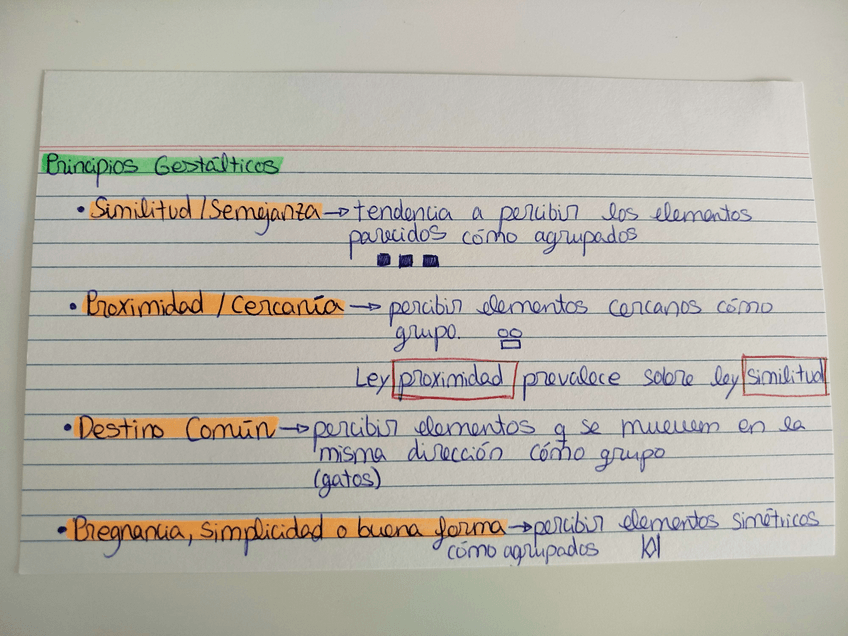 Principios Gestálticos
• Similitud / Semejanza → tendencia a percibir los elementos
parecidos cómo agrupados
• Proximidad / Cercanía → percibir elementos cercanos cómo
grupo.
Ley proximidad prevalece sobre ley similitud
• Destino Común → percibir elementos q se mueven en la
misma dirección cómo grupo
(gatos)
• Pregnancia, simplicidad o buena forma → percibir elementos simétricos
cómo agrupados